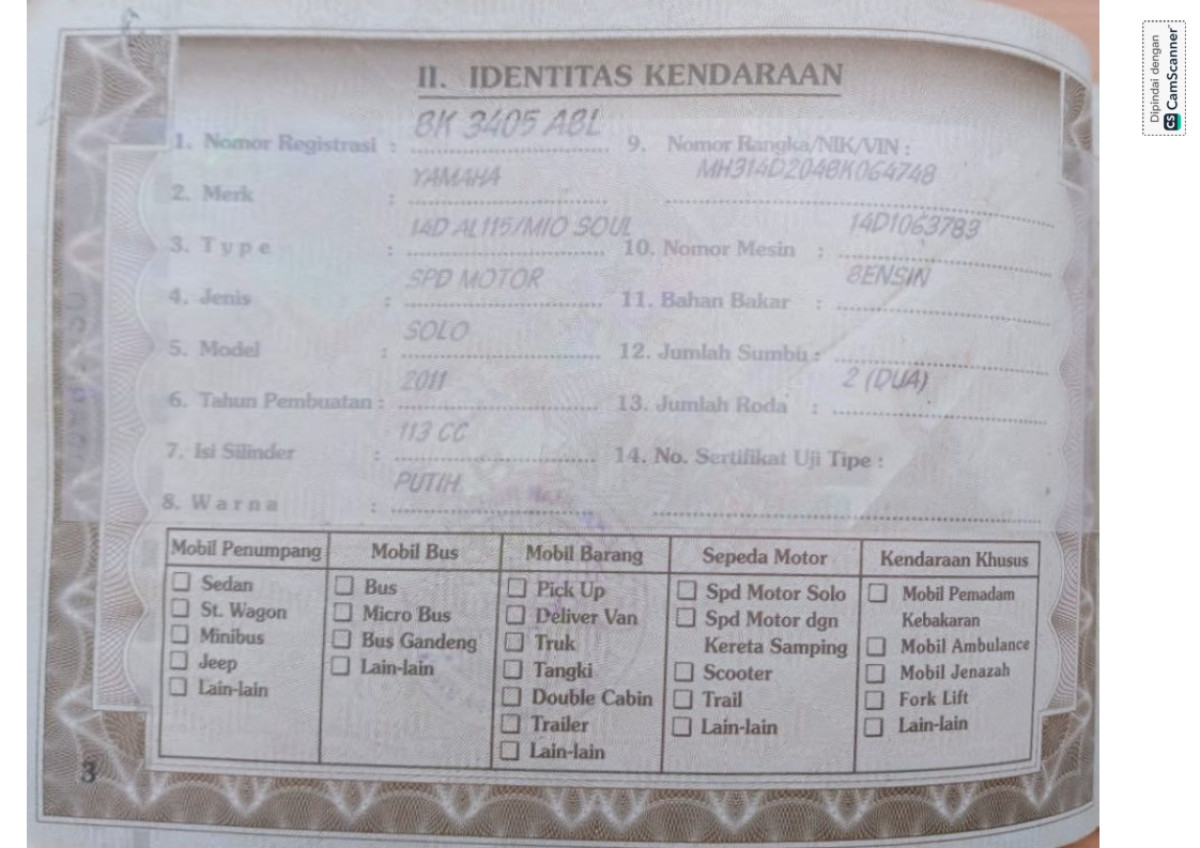 II. IDENTITAS KENDARAAN
1. Nomor Registrasi : BK 3405 ABL
2. Merk : YAMAHA
3. Type : 14D AL115/MIO SOUL
4. Jenis : SPD MOTOR
5. Model : SOLO
6. Tahun Pembuatan : 2011
7. Isi Silinder : 113 CC
8. Warna : PUTIH
9. Nomor Rangka/NIK/VIN :
MH314D204BK064748
10. Nomor Mesin : 14D1063783
11. Bahan Bakar : BENSIN
12. Jumlah Sumbu :
13. Jumlah Roda : 2 (DUA)
14. No. Sertifikat Uji Tipe :
Mobil Penumpang
Sedan
St. Wagon
Minibus
Jeep
Lain-lain
Mobil Bus
Bus
Micro Bus
Bus Gandeng
Lain-lain
Mobil Barang
Pick Up
Deliver Van
Truk
Tangki
Double Cabin
Trailer
Lain-lain
Sepeda Motor
Spd Motor Solo
Spd Motor dgn
Kereta Samping
Scooter
Trail
Lain-lain
Kendaraan Khusus
Mobil Pemadam
Kebakaran
Mobil Ambulance
Mobil Jenazah
Fork Lift
Lain-lain
3
Dipindai dengan
CS CamScanner